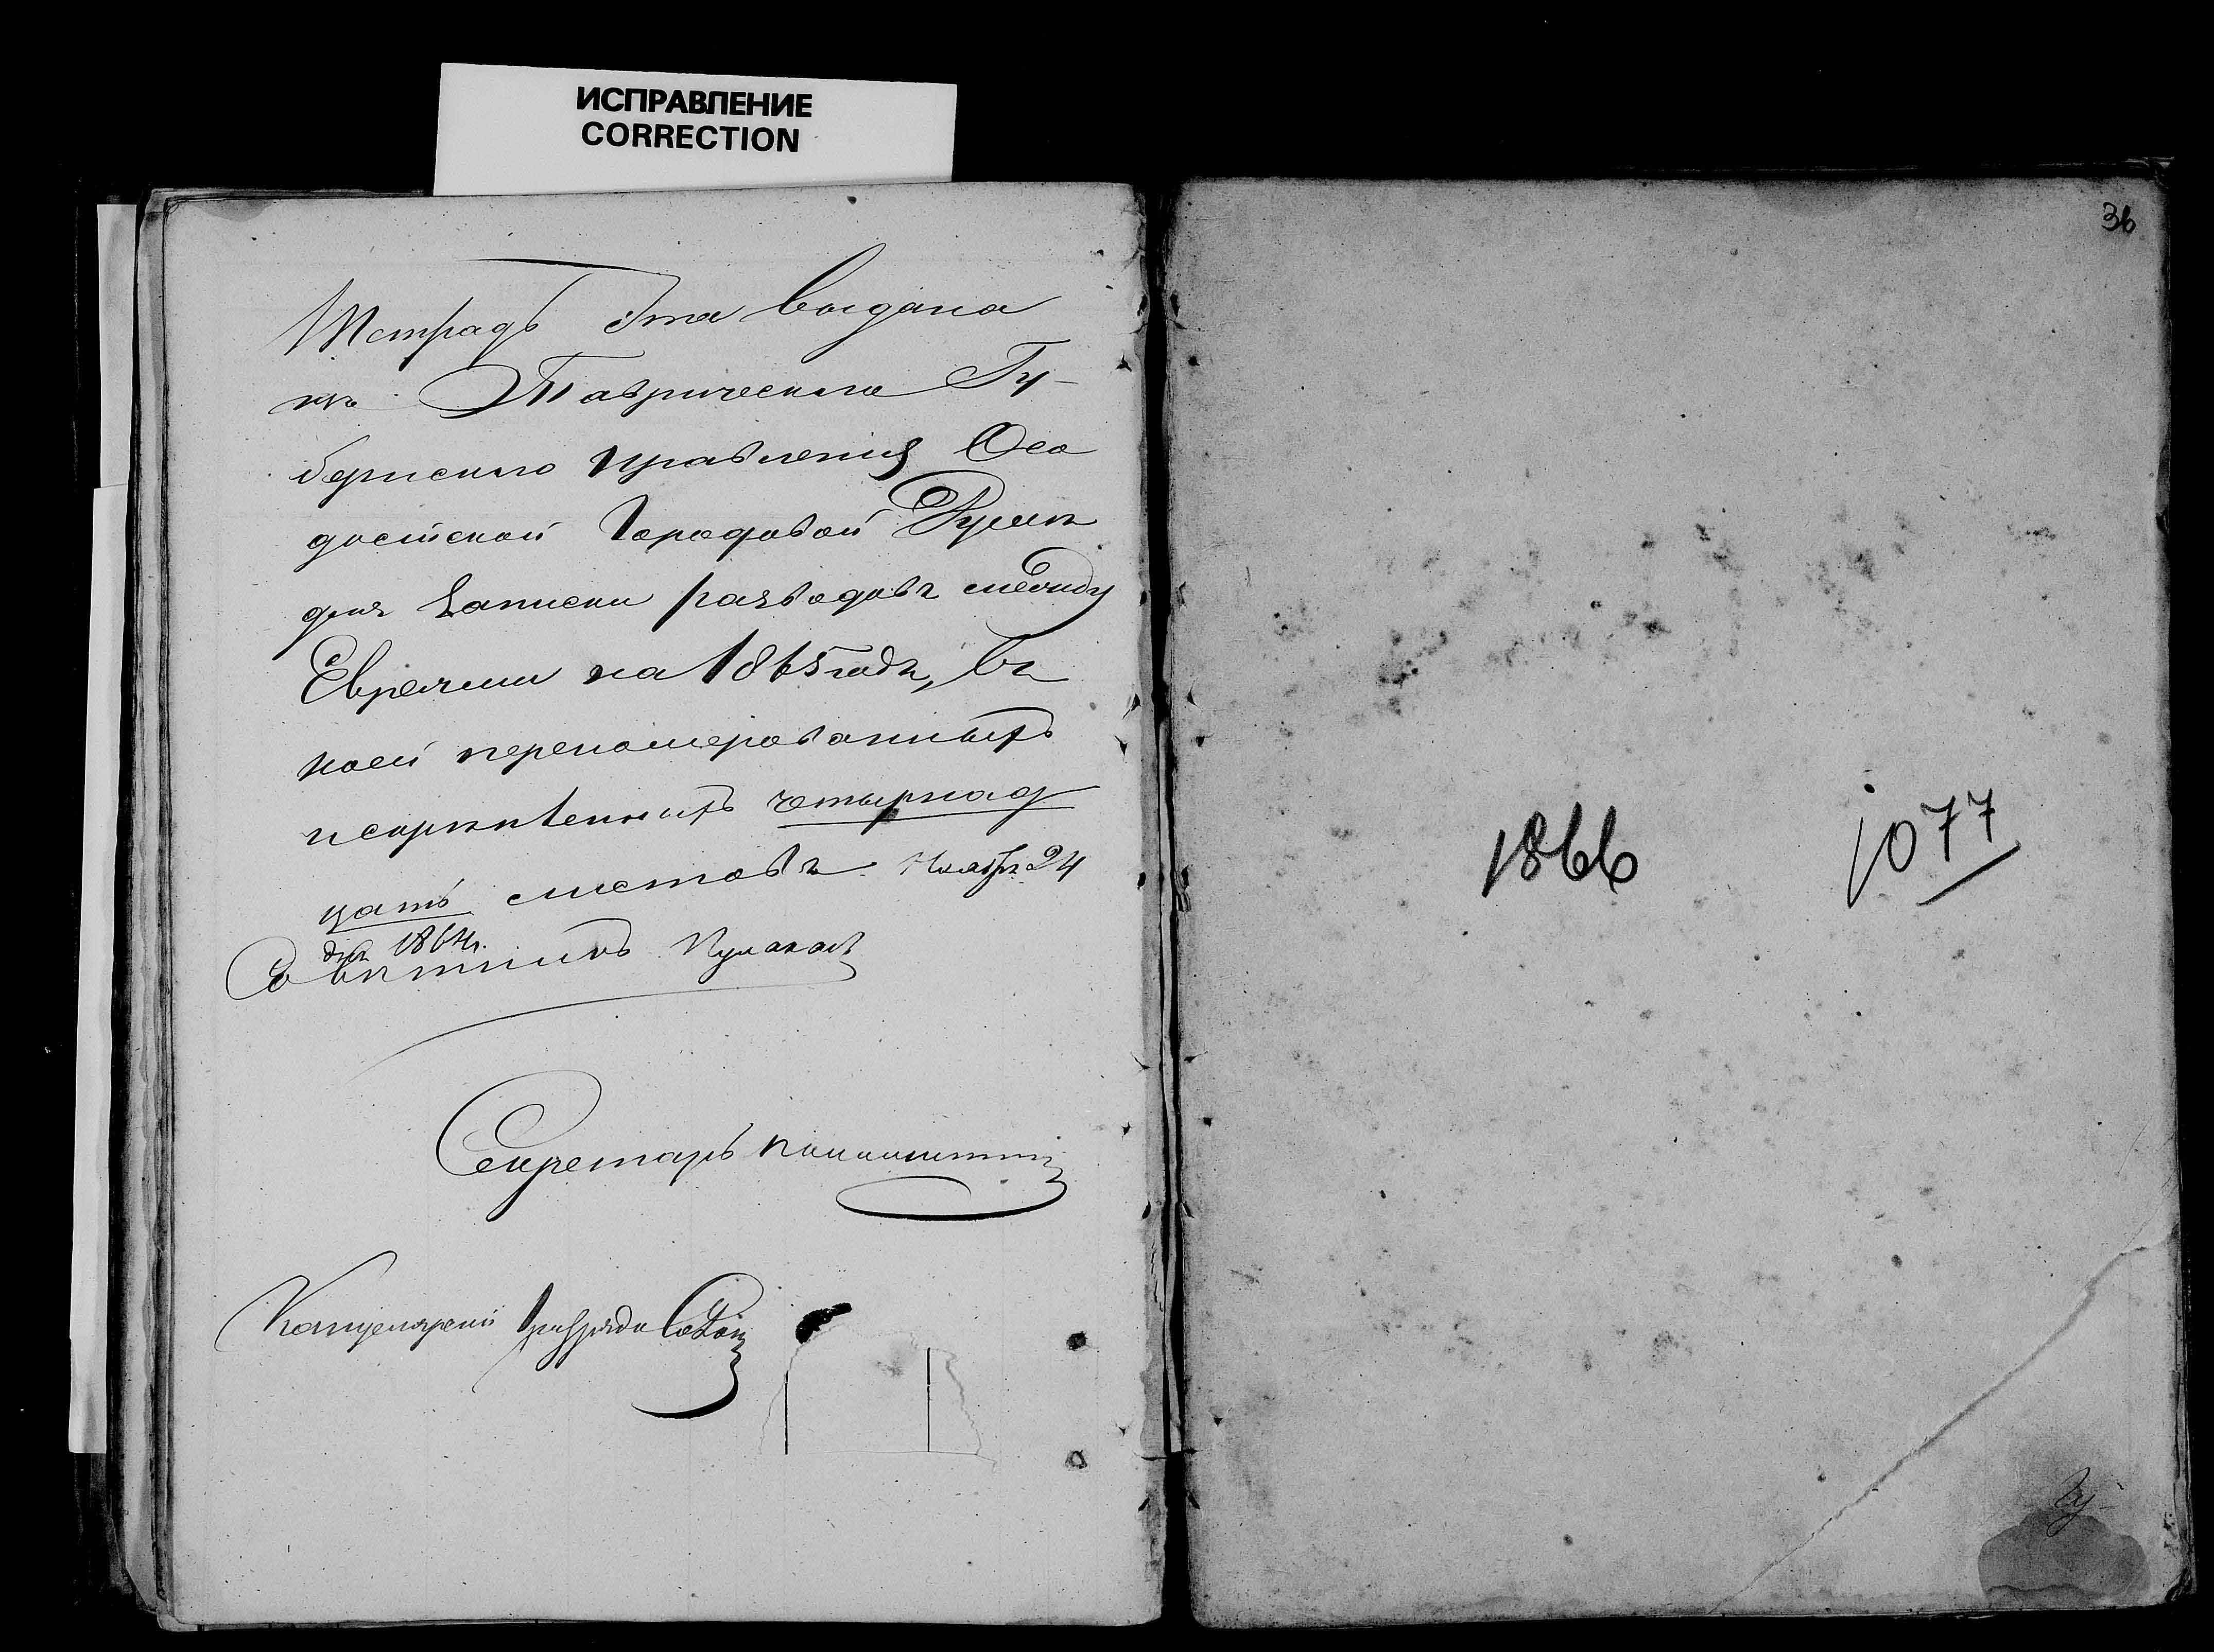 ИСПРАВЛЕНИЕ
CORRECTION
Тетрадь эта выдана
изъ Таврическаго Гу-
бернскаго правления Фео
досийской Городовой Думѣ
для записки разводовъ между
Евреями на 1865 годъ, въ
коей переномерованныхъ
и скрѣпленныхъ четырнад
цать листовъ. Ноября 24
дня 1864 г.
Совѣтникъ
Секретарь
Канцелярский
36
1866
1077